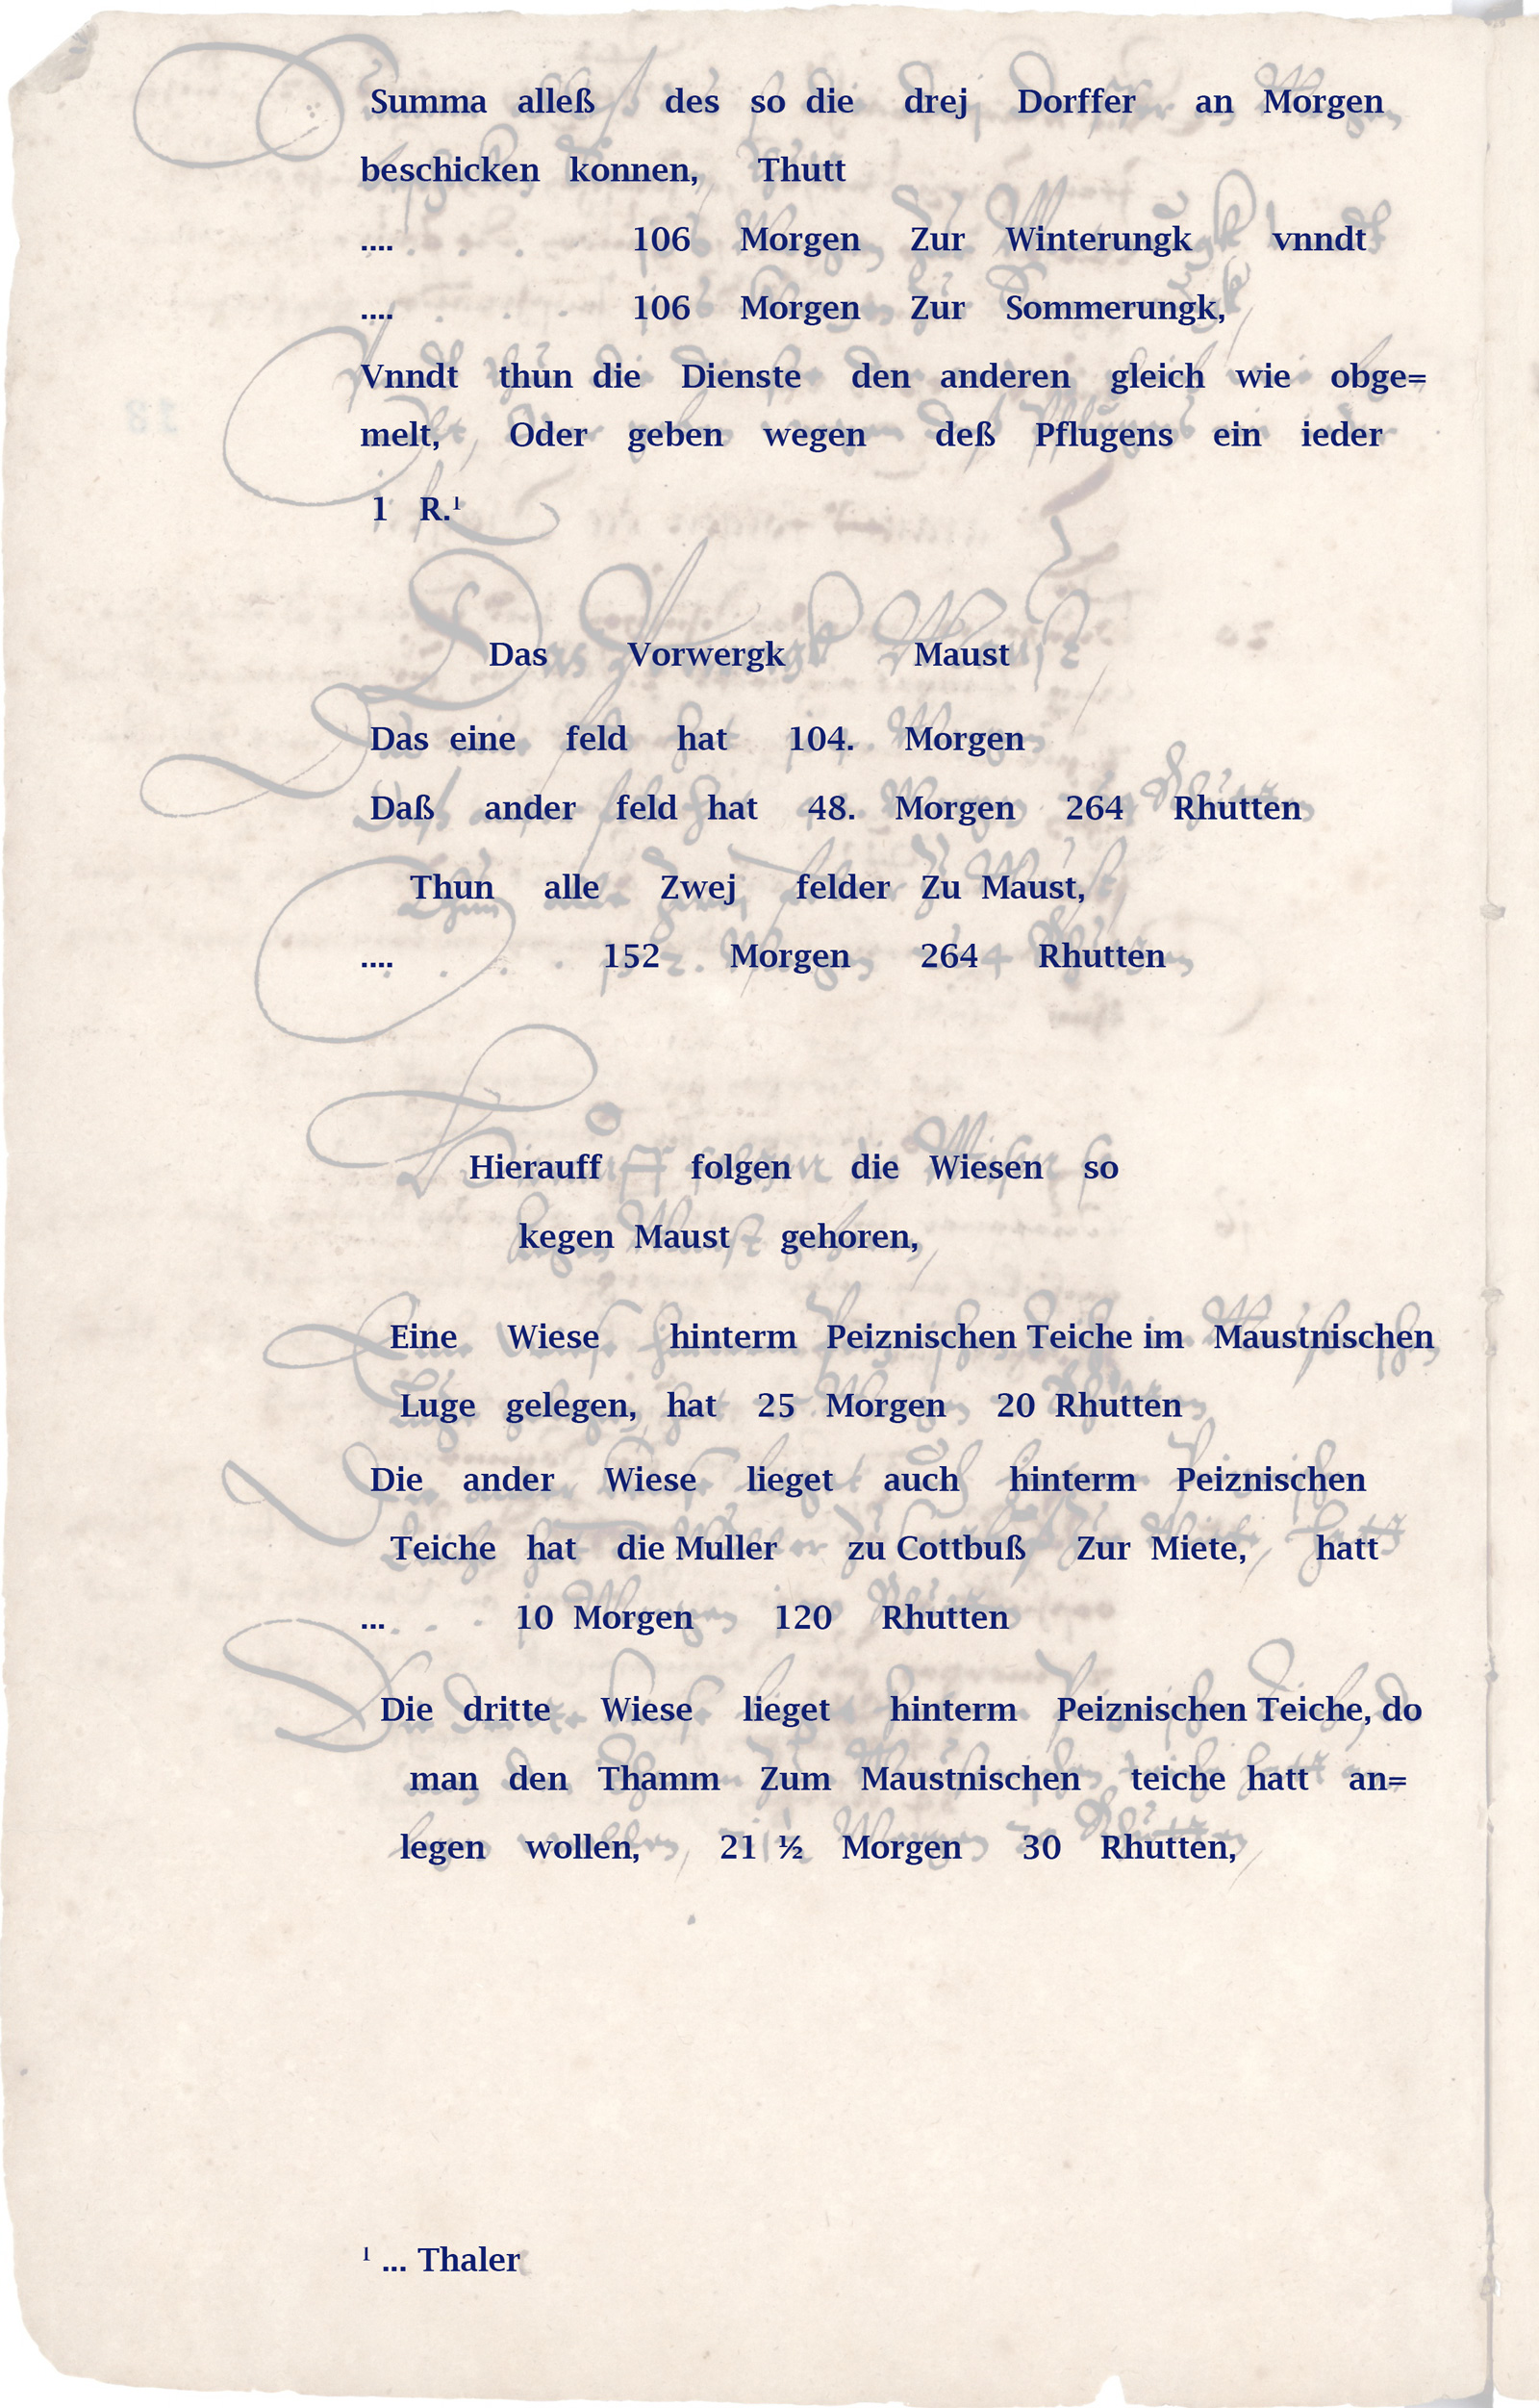 Summa alleß des so die drej Dorffer an Morgen
beschicken konnen, Thutt
.... 106 Morgen Zur Winterungk vnndt
.... 106 Morgen Zur Sommerungk,
Vnndt thun die Dienste den anderen gleich wie obge=
melt, Oder geben wegen deß Pflugens ein ieder
1 R.¹
Das Vorwergk Maust
Das eine feld hat 104. Morgen
Daß ander feld hat 48. Morgen 264 Rhutten
Thun alle Zwej felder Zu Maust,
.... 152 Morgen 264 Rhutten
Hierauff folgen die Wiesen so
kegen Maust gehoren,
Eine Wiese hinterm Peiznischen Teiche im Maustnischen
Luge gelegen, hat 25 Morgen 20 Rhutten
Die ander Wiese lieget auch hinterm Peiznischen
Teiche hat die Muller zu Cottbuß Zur Miete, hatt
... 10 Morgen 120 Rhutten
Die dritte Wiese lieget hinterm Peiznischen Teiche, do
man den Thamm Zum Maustnischen teiche hatt an=
legen wollen, 21 ½ Morgen 30 Rhutten,
¹ ... Thaler